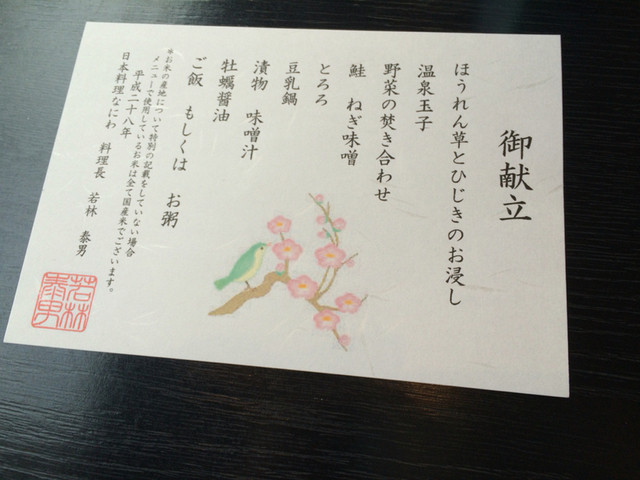 御献立
ほうれん草とひじきのお浸し
温泉玉子
野菜の焚き合わせ
鮭　ねぎ味噌
とろろ
豆乳鍋
漬物　味噌汁
牡蠣醤油
ご飯　もしくは　お粥
※お米の産地について特別の記載をしていない場合
メニューで使用しているお米は全て国産米でございます。
平成二十八年
日本料理なにわ　料理長　若林　泰男
若林
泰男